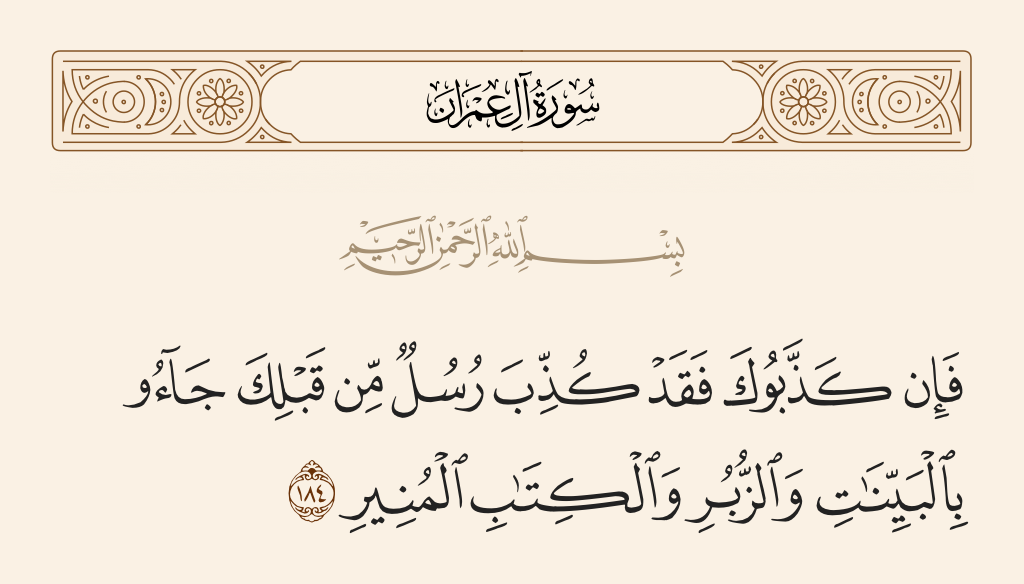 سُورَةُ آلِ عِمْرَان
بِسْمِ ٱللَّهِ ٱلرَّحْمَٰنِ ٱلرَّحِيمِ
فَإِن كَذَّبُوكَ فَقَدْ كُذِّبَ رُسُلٌ مِّن قَبْلِكَ جَآءُو
بِٱلْبَيِّنَٰتِ وَٱلزُّبُرِ وَٱلْكِتَٰبِ ٱلْمُنِيرِ ١٨٤